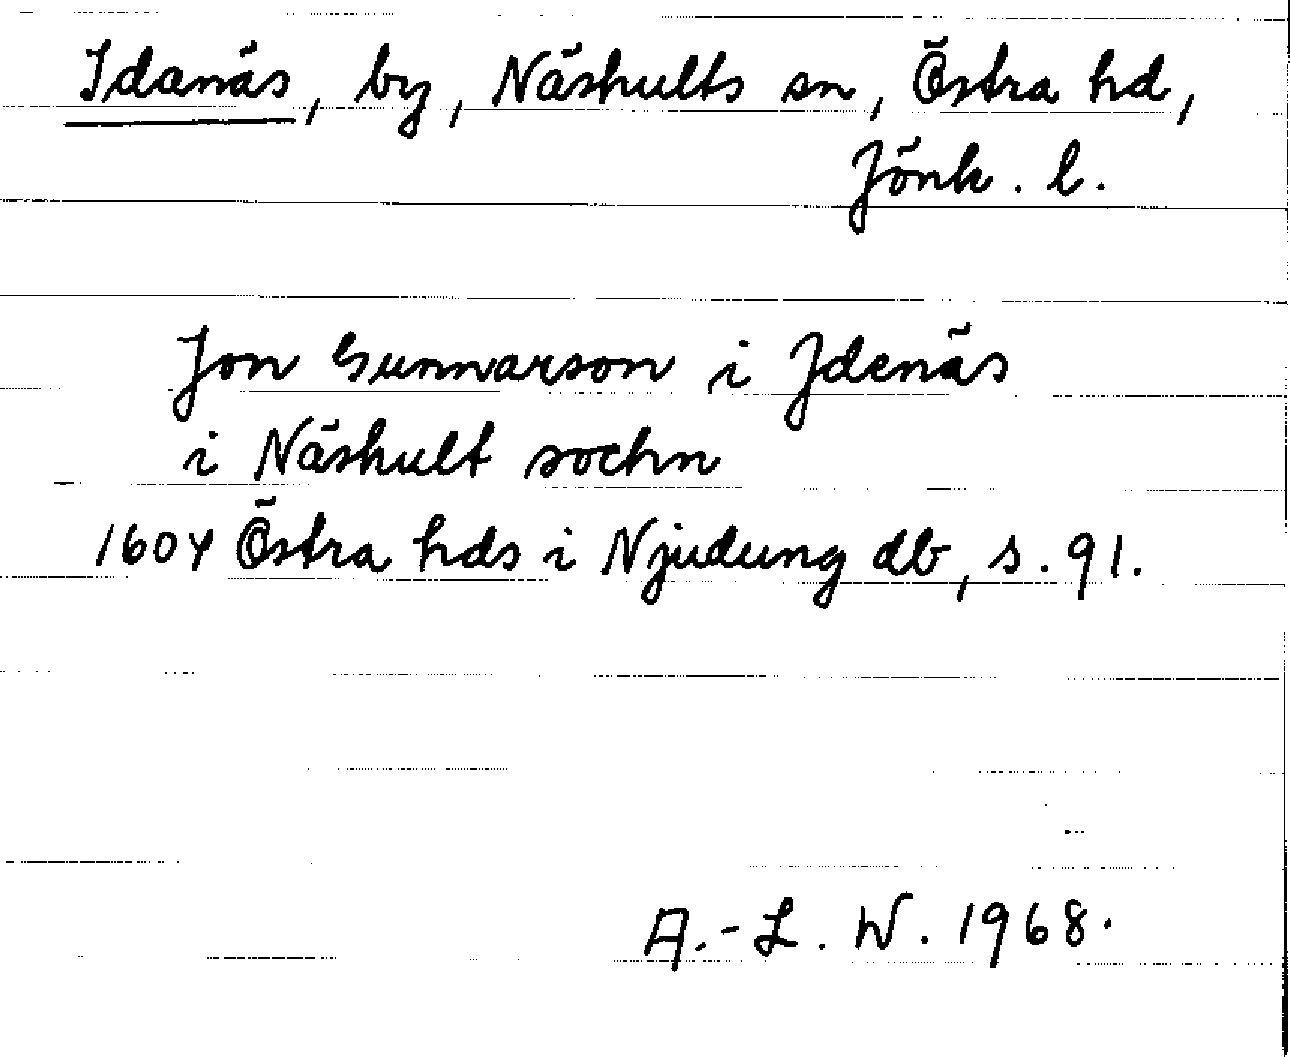 Idanäs, by, Näshults sn, Östra hd,
Jönk. l.
Jon Gunnarson i Jdenäs
i Näshult sochn
1604 Östra hds i Njudung db, s. 91.
A.-L. W. 1968.